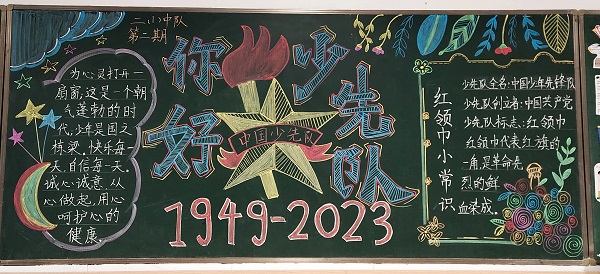 二(1)中队
第二期
为心灵打开一
扇窗,这是一个朝
气蓬勃的时
代,少年是国之
栋梁,快乐每一
天,自信每一天,
诚心诚意,从
心做起,用心
呵护心的
健康。
你好 少先队
中国少先队
1949-2023
红领巾小常识
少先队全名:中国少年先锋队
少先队创立者:中国共产党
少先队标志:红领巾
红领巾代表红旗的
一角,是革命先
烈的鲜
血染成。